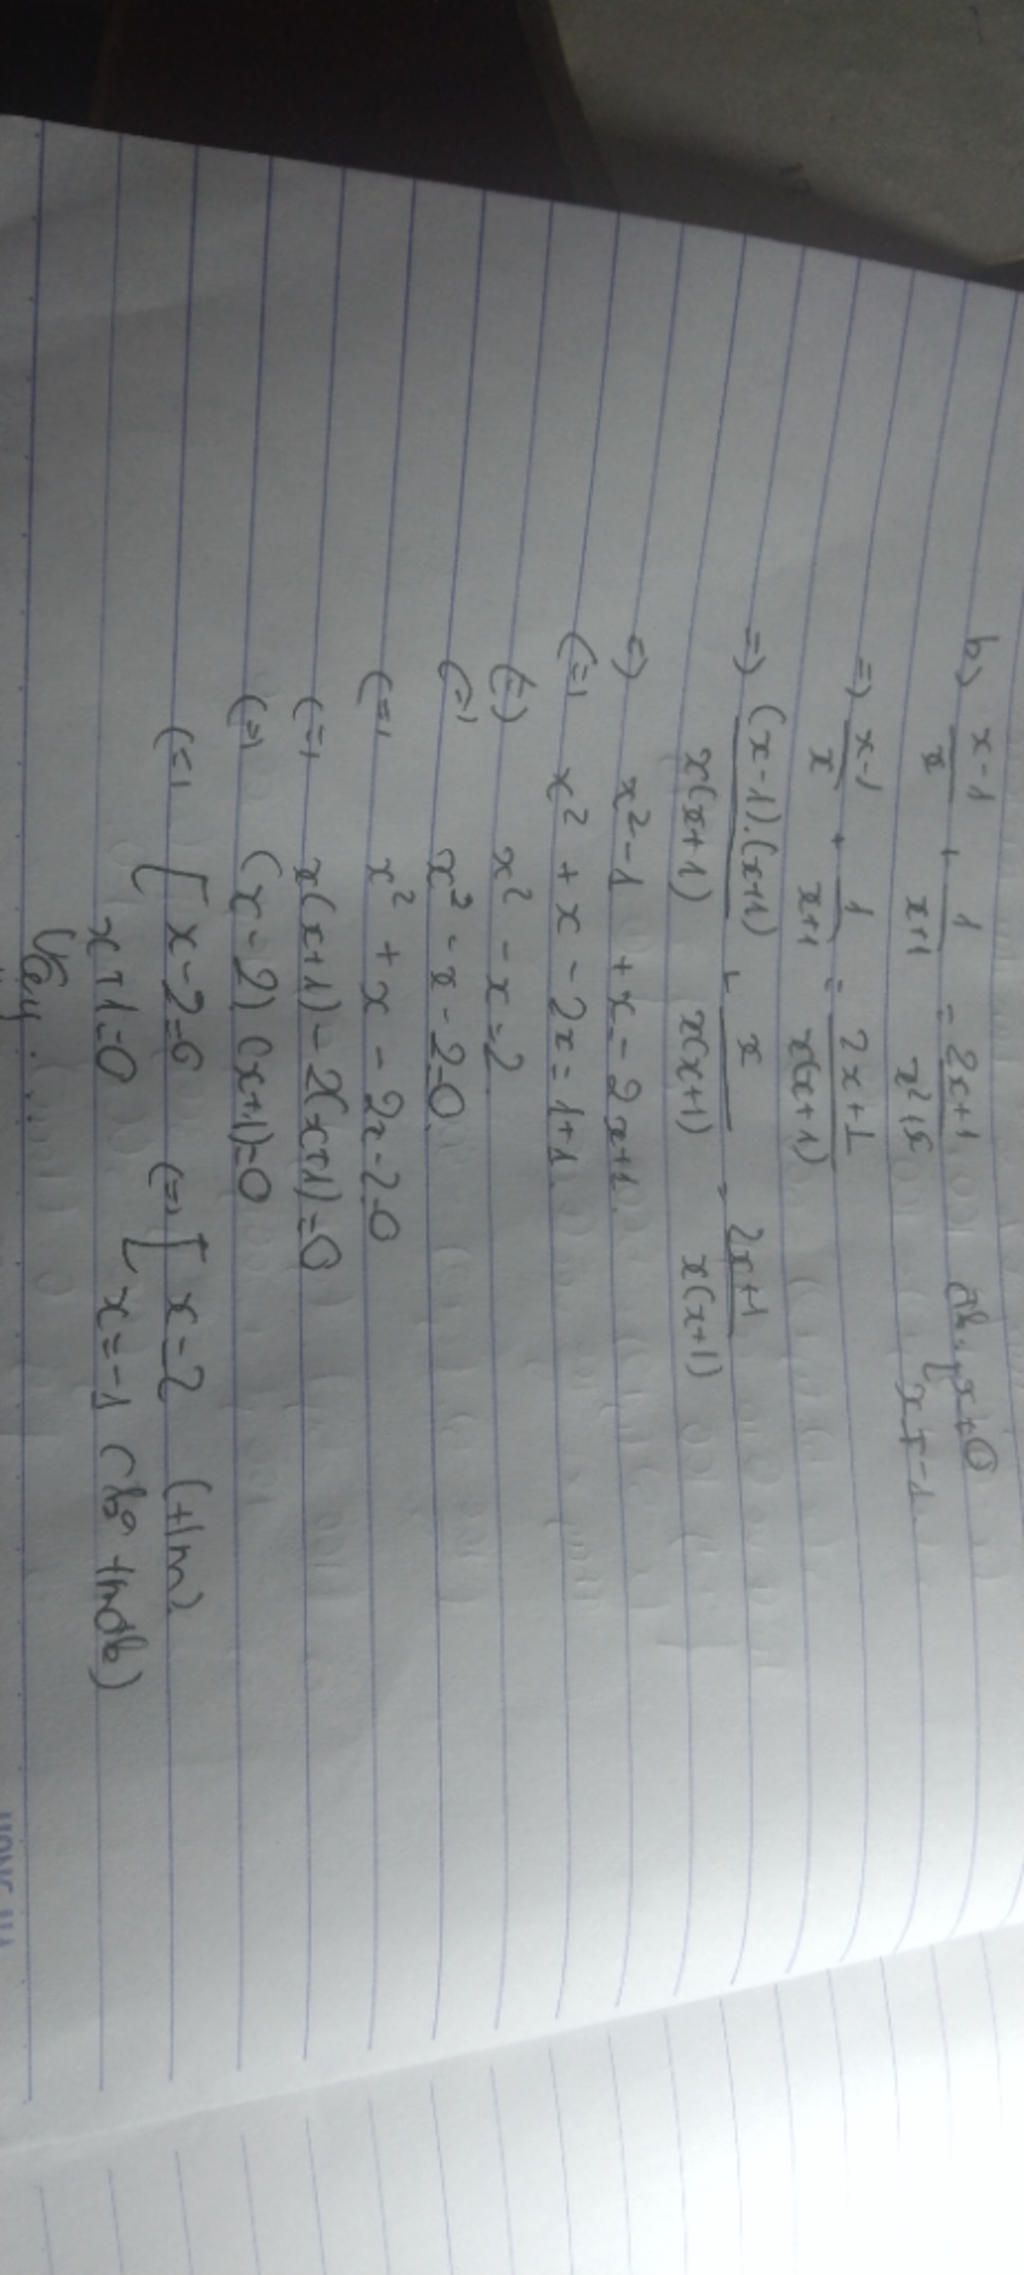 b) x-1/x + 1/x+1 = 2x+1/x²+x đk: { x≠0
x≠-1
=) x-1/x + 1/x+1 = 2x+1/x(x+1)
=) (x-1).(x+1)/x(x+1) + x/x(x+1) = 2x+1/x(x+1)
=) x²-1 + x = 2x+1
(=) x² + x - 2x = 1+1
(=) x² - x = 2
(=) x² - x - 2=0
(=) x² + x - 2x-2=0
(=) x(x+1) - 2(x+1)=0
(=) (x-2)(x+1)=0
(=) [ x-2=0 (=) [ x=2 (tm)
x+1=0 x=-1 (ko tmđk)
Vậy ....